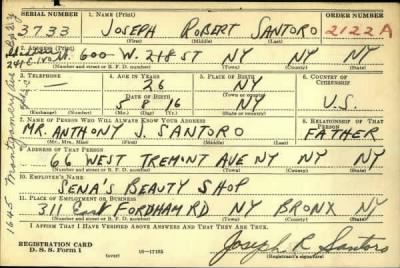 SERIAL NUMBER 1. NAME (Print) ORDER NUMBER
3733 JOSEPH ROBERT SANTORO 2122A
(First) (Middle) (Last)
2. ADDRESS (Print)
600 W. 218 ST NY NY NY
(Number and street or R. F. D. number) (Town) (County) (State)
3. TELEPHONE 4. AGE IN YEARS 5. PLACE OF BIRTH 6. COUNTRY OF CITIZENSHIP
— 26 NY
DATE OF BIRTH (Town or county)
5 8 16 NY U.S.
(Exchange) (Number) (Mo.) (Day) (Yr.) (State or country)
7. NAME OF PERSON WHO WILL ALWAYS KNOW YOUR ADDRESS 8. RELATIONSHIP OF THAT PERSON
MR. ANTHONY J. SANTORO FATHER
(Mr., Mrs., Miss) (First) (Middle) (Last)
9. ADDRESS OF THAT PERSON
66 WEST TREMONT AVE NY NY NY
(Number and street or R. F. D. number) (Town) (County) (State)
10. EMPLOYER'S NAME
SENA'S BEAUTY SHOP
11. PLACE OF EMPLOYMENT OR BUSINESS
311 East FORDHAM RD NY BRONX NY
(Number and street or R. F. D. number) (Town) (County) (State)
I AFFIRM THAT I HAVE VERIFIED ABOVE ANSWERS AND THAT THEY ARE TRUE.
REGISTRATION CARD
D. S. S. Form 1 (over) 16—17105 Joseph R Santoro
(Registrant's signature)
1645 Montgomery Ave